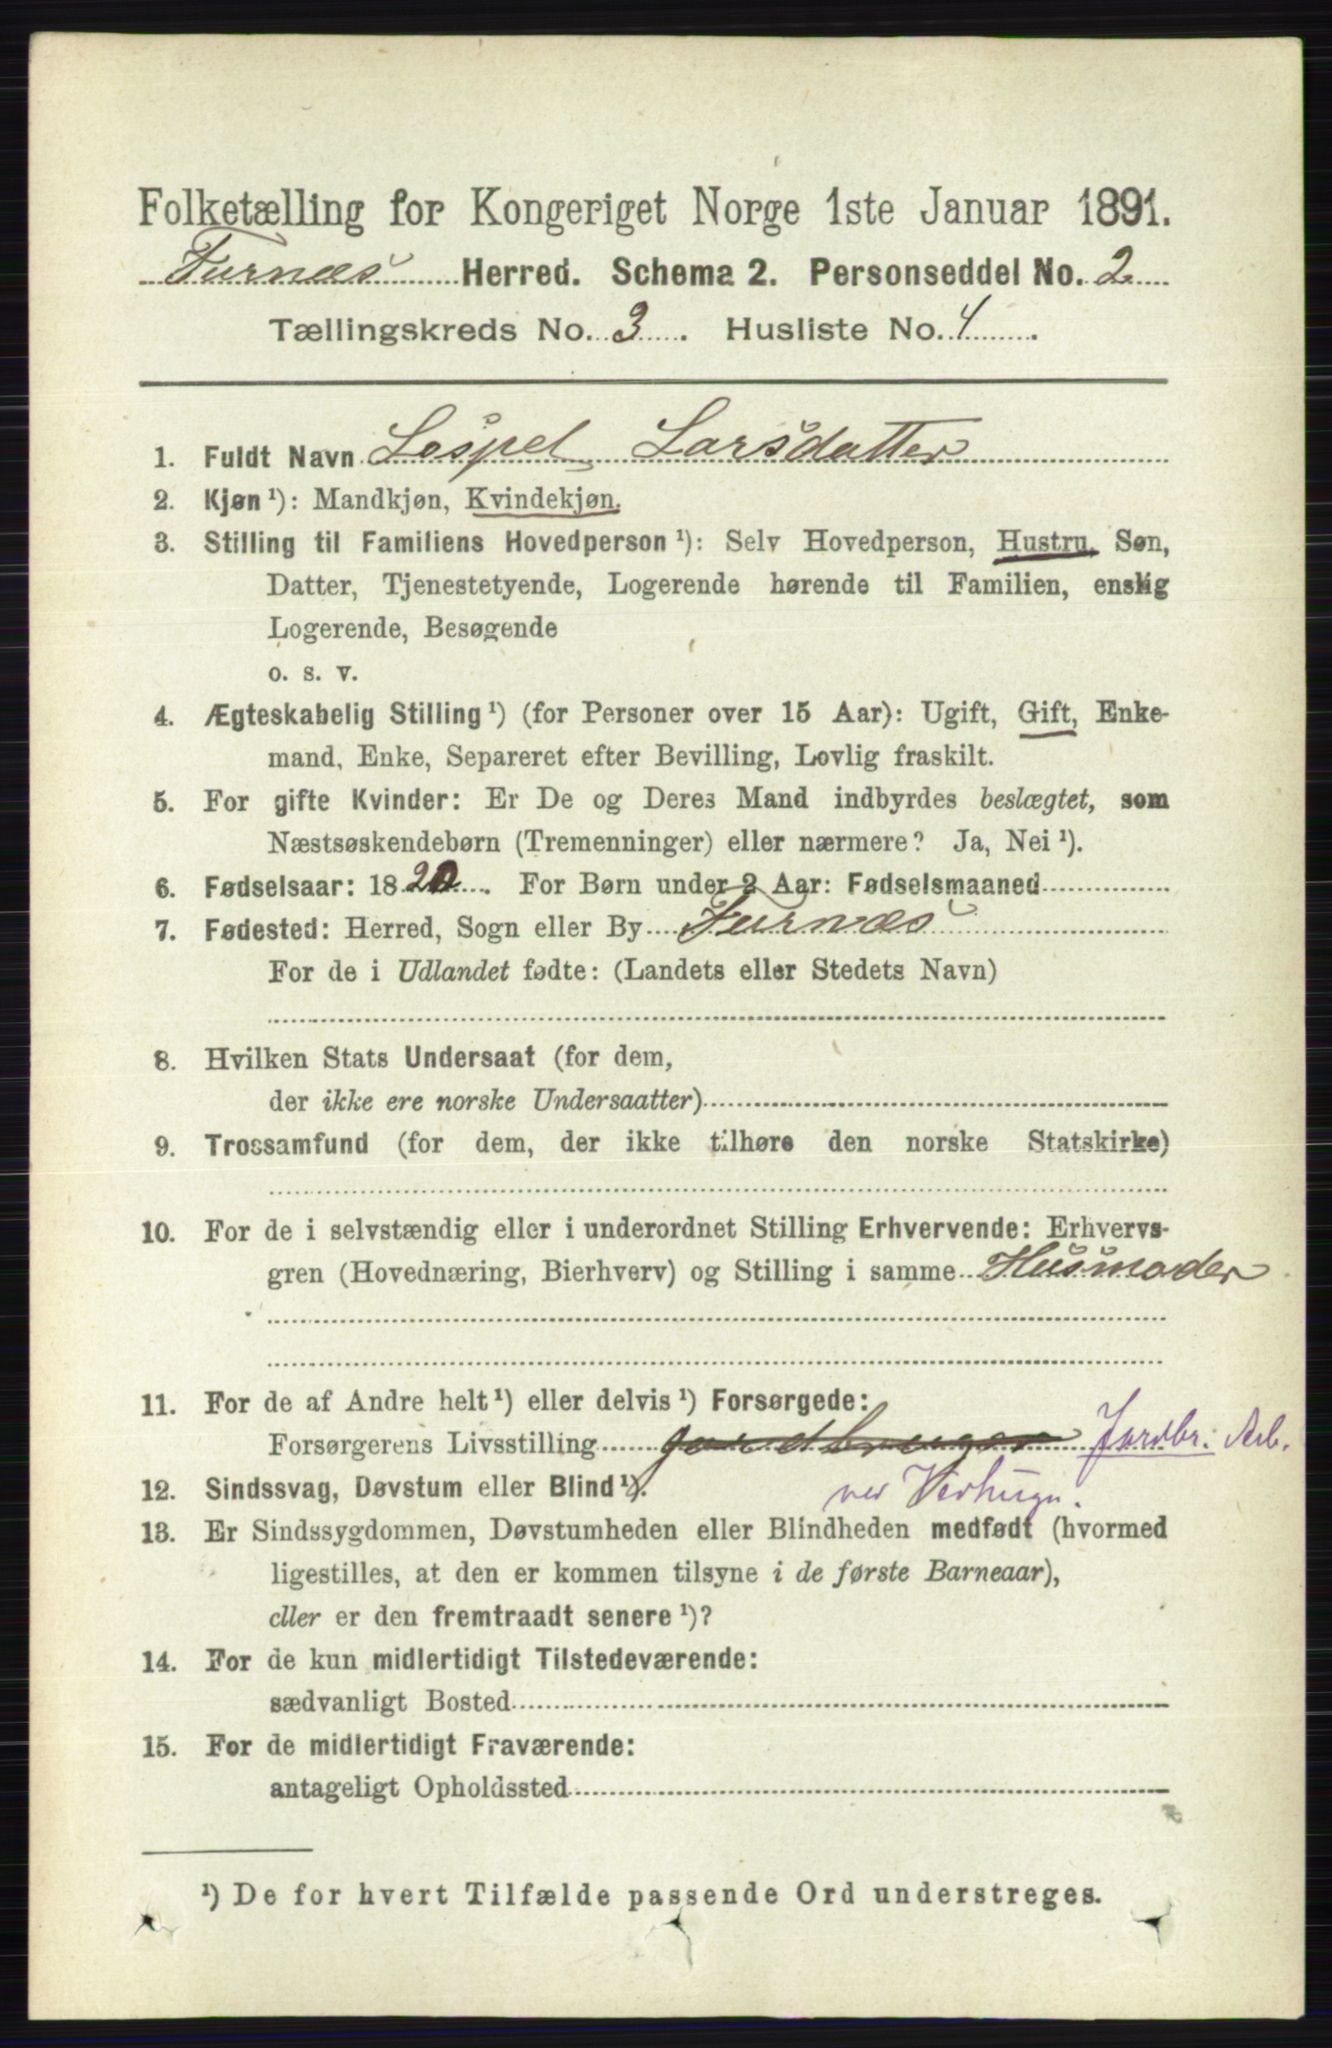 Folketælling for Kongeriget Norge 1ste Januar 1891.
Furnæs Herred. Schema 2. Personseddel No. 2
Tællingskreds No. 3. Husliste No. 4.
1. Fuldt Navn Lespel Larsdatter
2. Kjøn ¹): Mandkjøn, Kvindekjøn.
3. Stilling til Familiens Hovedperson ¹): Selv Hovedperson, Hustru, Søn,
Datter, Tjenestetyende, Logerende hørende til Familien, enslig
Logerende, Besøgende
o. s. v.
4. Ægteskabelig Stilling ¹) (for Personer over 15 Aar): Ugift, Gift, Enke-
mand, Enke, Separeret efter Bevilling, Lovlig fraskilt.
5. For gifte Kvinder: Er De og Deres Mand indbyrdes beslægtet, som
Næstsøskendebørn (Tremenninger) eller nærmere? Ja, Nei ¹).
6. Fødselsaar: 1820. For Børn under 2 Aar: Fødselsmaaned
7. Fødested: Herred, Sogn eller By Furnæs
For de i Udlandet fødte: (Landets eller Stedets Navn)
8. Hvilken Stats Undersaat (for dem,
der ikke ere norske Undersaatter)
9. Trossamfund (for dem, der ikke tilhøre den norske Statskirke)
10. For de i selvstændig eller i underordnet Stilling Erhvervende: Erhvervs-
gren (Hovednæring, Bierhverv) og Stilling i samme Husmoder
11. For de af Andre helt ¹) eller delvis ¹) Forsørgede:
Forsørgerens Livsstilling gardbruger Jordbr. Arb.
12. Sindssvag, Døvstum eller Blind ¹). ved Vedhugn.
13. Er Sindssygdommen, Døvstumheden eller Blindheden medfødt (hvormed
ligestilles, at den er kommen tilsyne i de første Barneaar),
eller er den fremtraadt senere ¹)?
14. For de kun midlertidigt Tilstedeværende:
sædvanligt Bosted
15. For de midlertidigt Fraværende:
antageligt Opholdssted
¹) De for hvert Tilfælde passende Ord understreges.